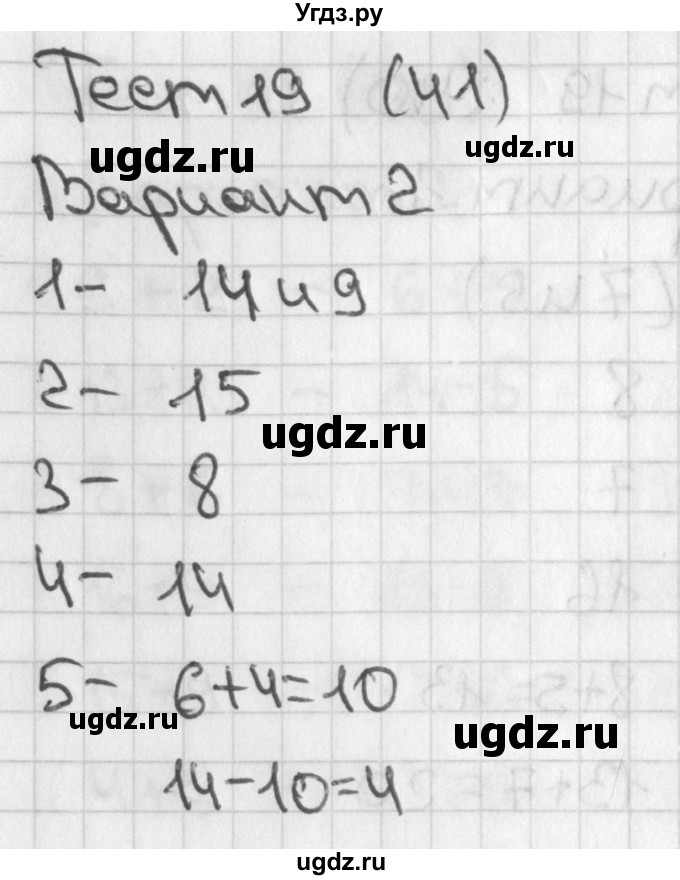 Угдз.ру
Тест 19 (41)
ugdz.ru ugdz.ru
Вариант 2
1- 14 и 9
2- 15
ugdz.ru
3- 8
4- 14
5- 6+4=10
ugdz.ru ugdz.ru
14-10=4
ugdz.ru